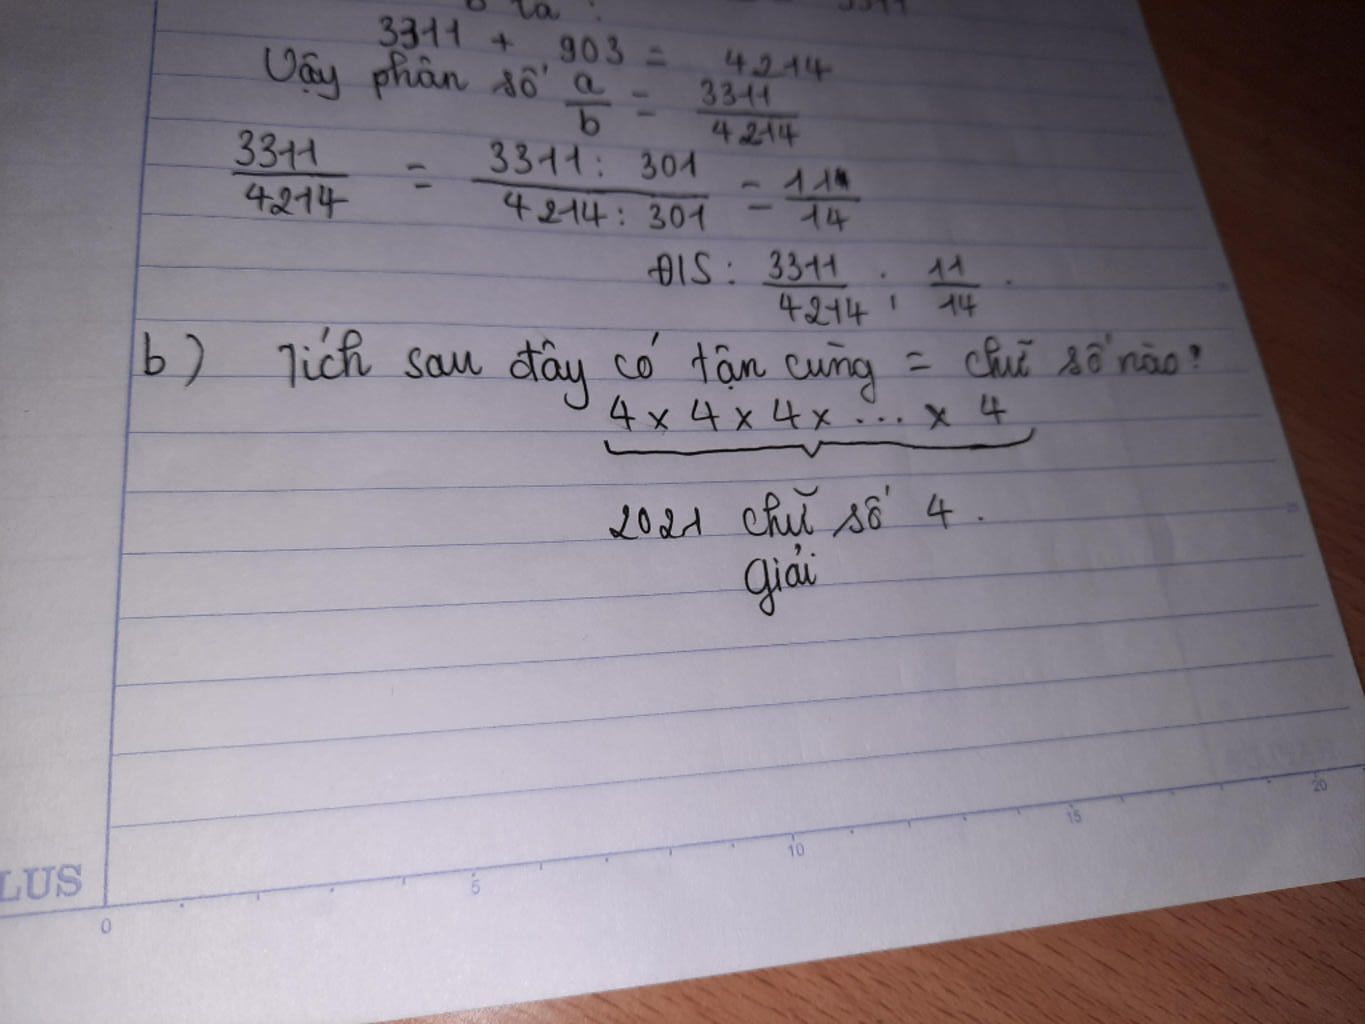 là :
3311
3311 + 903 = 4214
Vậy phân số a/b = 3311/4214
3311/4214 = 3311 : 301/4214 : 301 = 11/14
Đ/S : 3311/4214 ; 11/14 .
b) Tích sau đây có tận cùng = chữ số nào?
4 x 4 x 4 x ... x 4
2021 chữ số 4 .
Giải
LUS
0 5 10 15 20